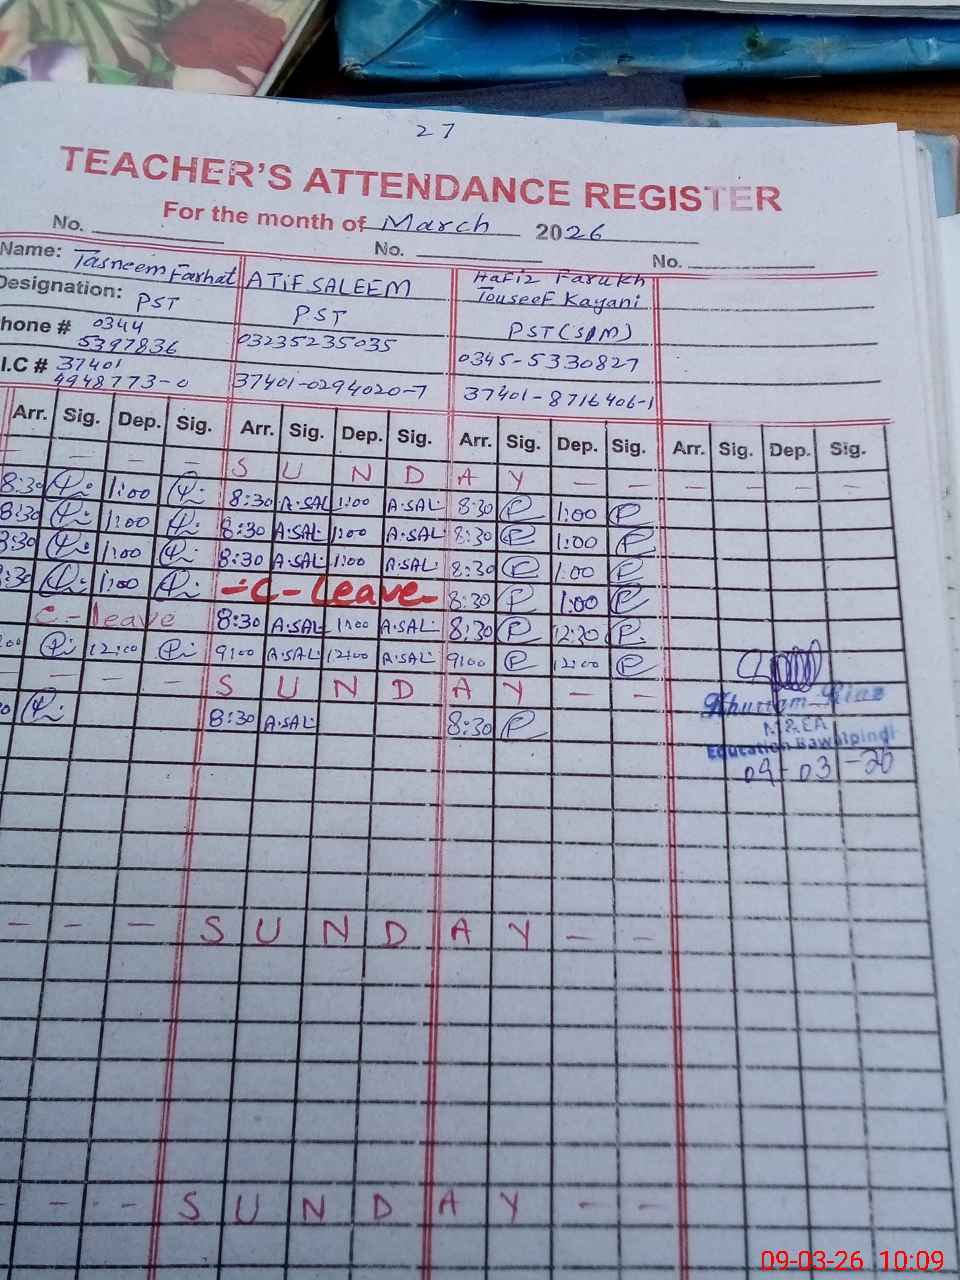 27
TEACHER'S ATTENDANCE REGISTER
For the month of March 2026
No. No. No.
Name: Tasneem Farhat ATIF SALEEM Hafiz Farukh Touseef Kayani
Designation: PST PST PST (S/M)
hone # 0344 5397836 03235235035 0345-5330827
I.C # 37401 4948773-0 37401-0294020-7 37401-8716406-1
Arr. Sig. Dep. Sig. Arr. Sig. Dep. Sig. Arr. Sig. Dep. Sig. Arr. Sig. Dep. Sig.
- - - - S U N D A Y - - - - - -
8:30 1:00 8:30 A.SAL 1:00 A.SAL 8:30 P 1:00 P
8:30 1:00 8:30 A.SAL 1:00 A.SAL 8:30 P 1:00 P
8:30 1:00 8:30 A.SAL 1:00 A.SAL 8:30 P 1:00 P
8:30 1:00 -C-Leave- 8:30 P 1:00 P
C-leave 8:30 A.SAL 1:00 A.SAL 8:30 P 12:30 P
:00 12:00 9:00 A.SAL 12:00 A.SAL 9:00 P 12:00 P
- - - - S U N D A Y - -
0 8:30 A.SAL 8:30 P
Khurram Riaz
M&EA
Education Rawalpindi
09-03-26
- - - S U N D A Y - -
- - - S U N D A Y - -
09-03-26 10:09